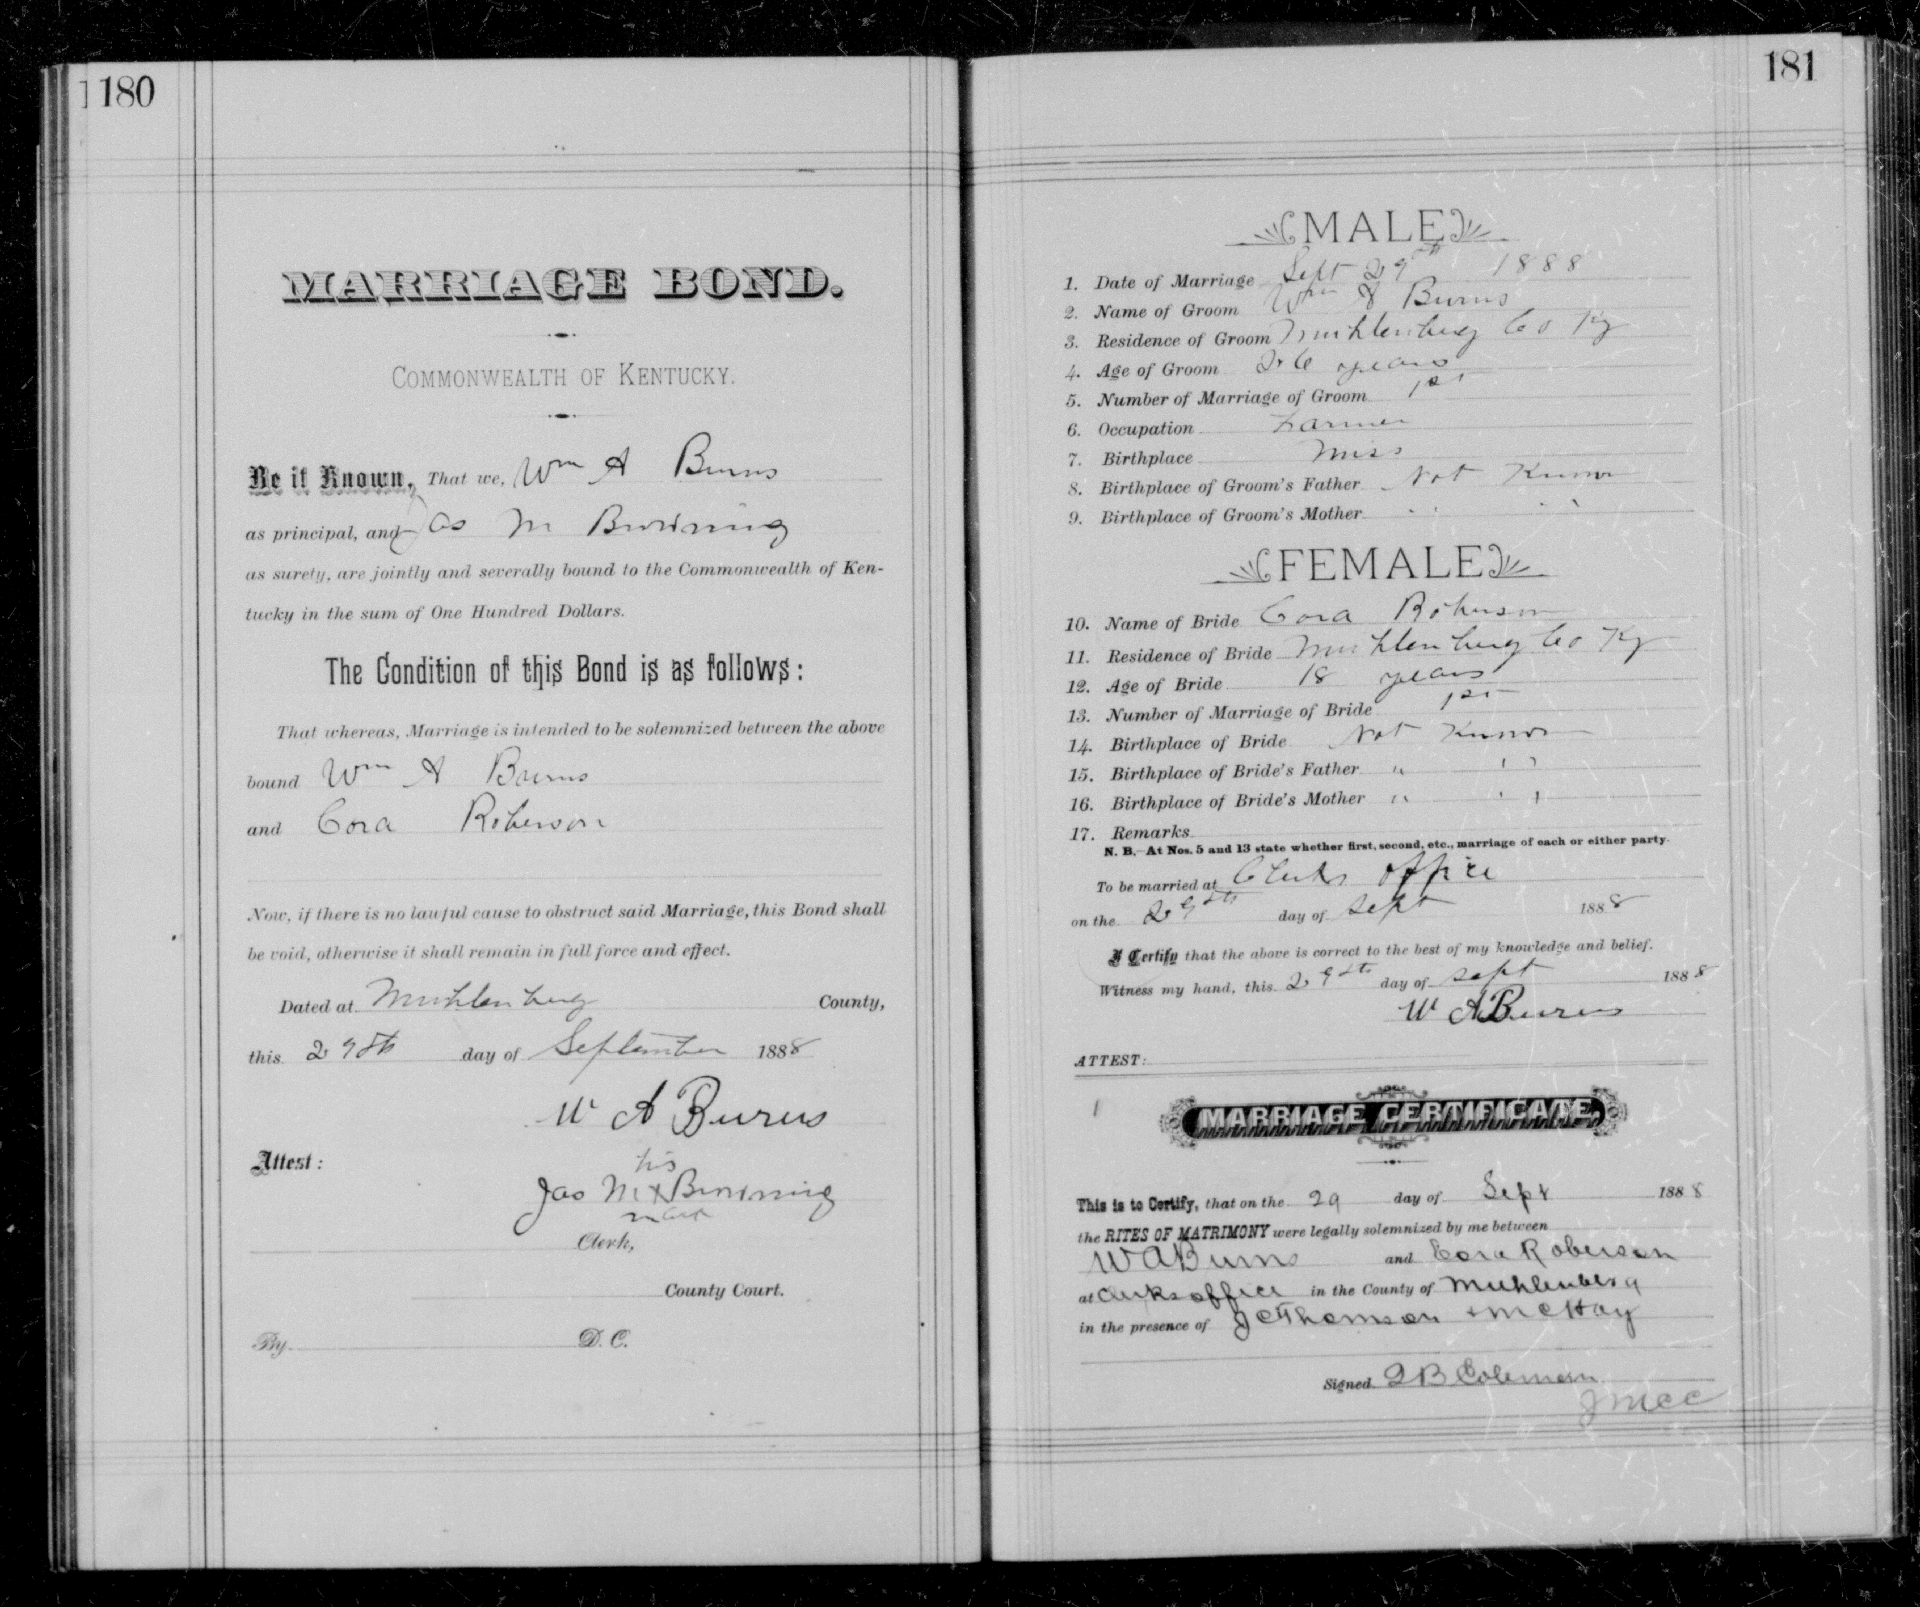 180
MARRIAGE BOND.
COMMONWEALTH OF KENTUCKY.
Be it Known, That we, Wm A Burns
as principal, and Jas M Browning
as surety, are jointly and severally bound to the Commonwealth of Ken-
tucky in the sum of One Hundred Dollars.
The Condition of this Bond is as follows:
That whereas, Marriage is intended to be solemnized between the above
bound Wm A Burns
and Cora Roberson
Now, if there is no lawful cause to obstruct said Marriage, this Bond shall
be void, otherwise it shall remain in full force and effect.
Dated at Muhlenberg County,
this 29th day of September 1888
W A Burns
Attest:
his
Jas M x Browning
mark
Clerk,
County Court.
By D. C.
181
MALE
1. Date of Marriage Sept 29th 1888
2. Name of Groom Wm A Burns
3. Residence of Groom Muhlenberg Co Ky
4. Age of Groom 26 years
5. Number of Marriage of Groom 1st
6. Occupation Farmer
7. Birthplace Miss
8. Birthplace of Groom's Father Not Known
9. Birthplace of Groom's Mother " "
FEMALE
10. Name of Bride Cora Roberson
11. Residence of Bride Muhlenberg Co Ky
12. Age of Bride 18 years
13. Number of Marriage of Bride 1st
14. Birthplace of Bride Not Known
15. Birthplace of Bride's Father " "
16. Birthplace of Bride's Mother " "
17. Remarks
N. B.—At Nos. 5 and 13 state whether first, second, etc., marriage of each or either party.
To be married at Clerks office
on the 29th day of Sept 1888
I Certify that the above is correct to the best of my knowledge and belief.
Witness my hand, this 29th day of Sept 1888
W A Burns
ATTEST:
MARRIAGE CERTIFICATE.
This is to Certify, that on the 29 day of Sept 1888
the RITES OF MATRIMONY were legally solemnized by me between
W A Burns and Cora Roberson
at Clerks office in the County of Muhlenberg
in the presence of J C Thomson + McHay
Signed Q B Coleman
J M C C